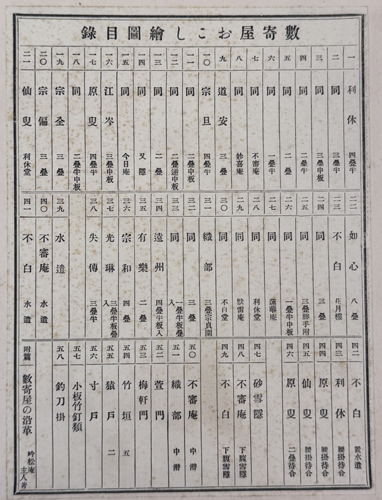 數寄屋おこし繪圖目錄
一 利休 四疊半
二 同 三疊
三 同 三疊中板
四 同 二疊
五 同 二疊
六 同 一疊半
七 同 不審庵
八 同 妙喜庵
九 道安 三疊
一〇 宗旦 四疊半
一一 同 二疊中板
一二 同 二疊中板
一三 同 二疊
一四 同 又隱
一五 同 今日庵
一六 江岑 三疊中板
一七 原叟 四疊半
一八 同 二疊半中板
一九 宗全 三疊
二〇 宗偏 三疊
二一 仙叟 利休堂
二二 如心 八疊
二三 不白 花月樓
二四 同 四疊
二五 同 三疊勝手附
二六 同 一疊半中板
二七 同 蓮華庵
二八 同 利休堂
二九 同 默雷庵
三〇 同 不白堂
三一 織部 三疊宗貞圍
三二 同 三疊
三三 同 一疊半板疊入
三四 遠州 四疊半板入
三五 有樂 二疊
三六 宗和 四疊
三七 光琳 三疊半板疊入
三八 失傳 三疊半
三九 水遣
四〇 不審庵 水遣
四一 不白 水遣
四二 不白 置水遣
四三 利休 腰掛待合
四四 原叟 腰掛待合
四五 仙叟 腰掛待合
四六 原叟 二疊待合
四七 砂雪隱
四八 不審庵 下腹雪隱
四九 不白 下腹雪隱
五〇 不審庵 中潛
五一 織部 中潛
五二 萱門
五三 梅軒門
五四 竹垣 五
五五 猿戸 二
五六 寸戸
五七 小板竹釘類
五八 釣刀掛
附篇 數寄屋の沿革 吟松庵主人著